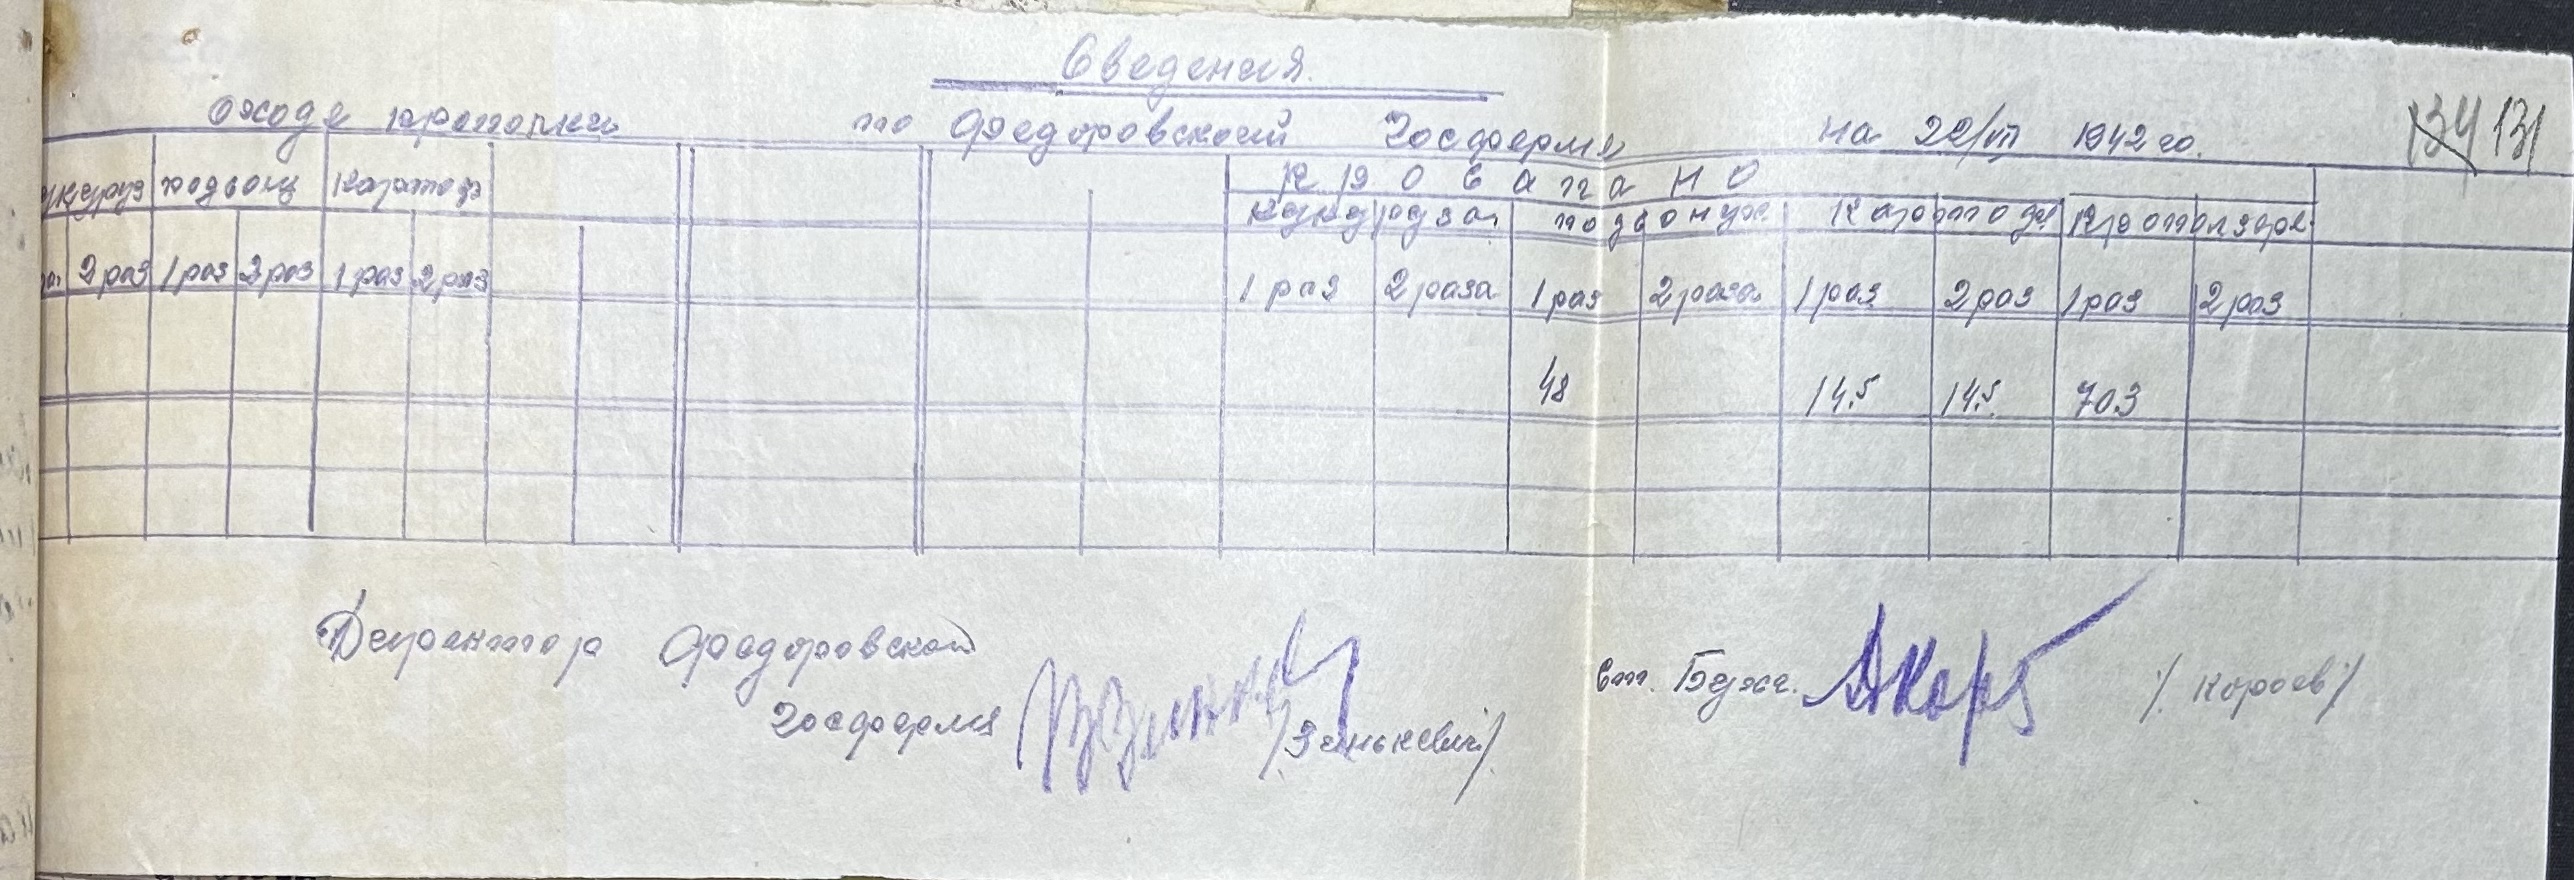 Сведения.
о ходе прополки по Федоровский Госферме на 22/VII 1942 го.
134 131
подсолн Картоф
К у л ь т и в и р о в а н о
кукурузы подсолнух Картофе
2 раз 1 раз 2 раз 1 раз 2 раз 1 раз 2 раза 1 раз 2 раза 1 раз 2 раз 1 раз 2 раз
48 14.5 14.5 703
Деректтор Федоровской
Госфермы /Зенькевич/.
Ст. Бухг. /. Короев/